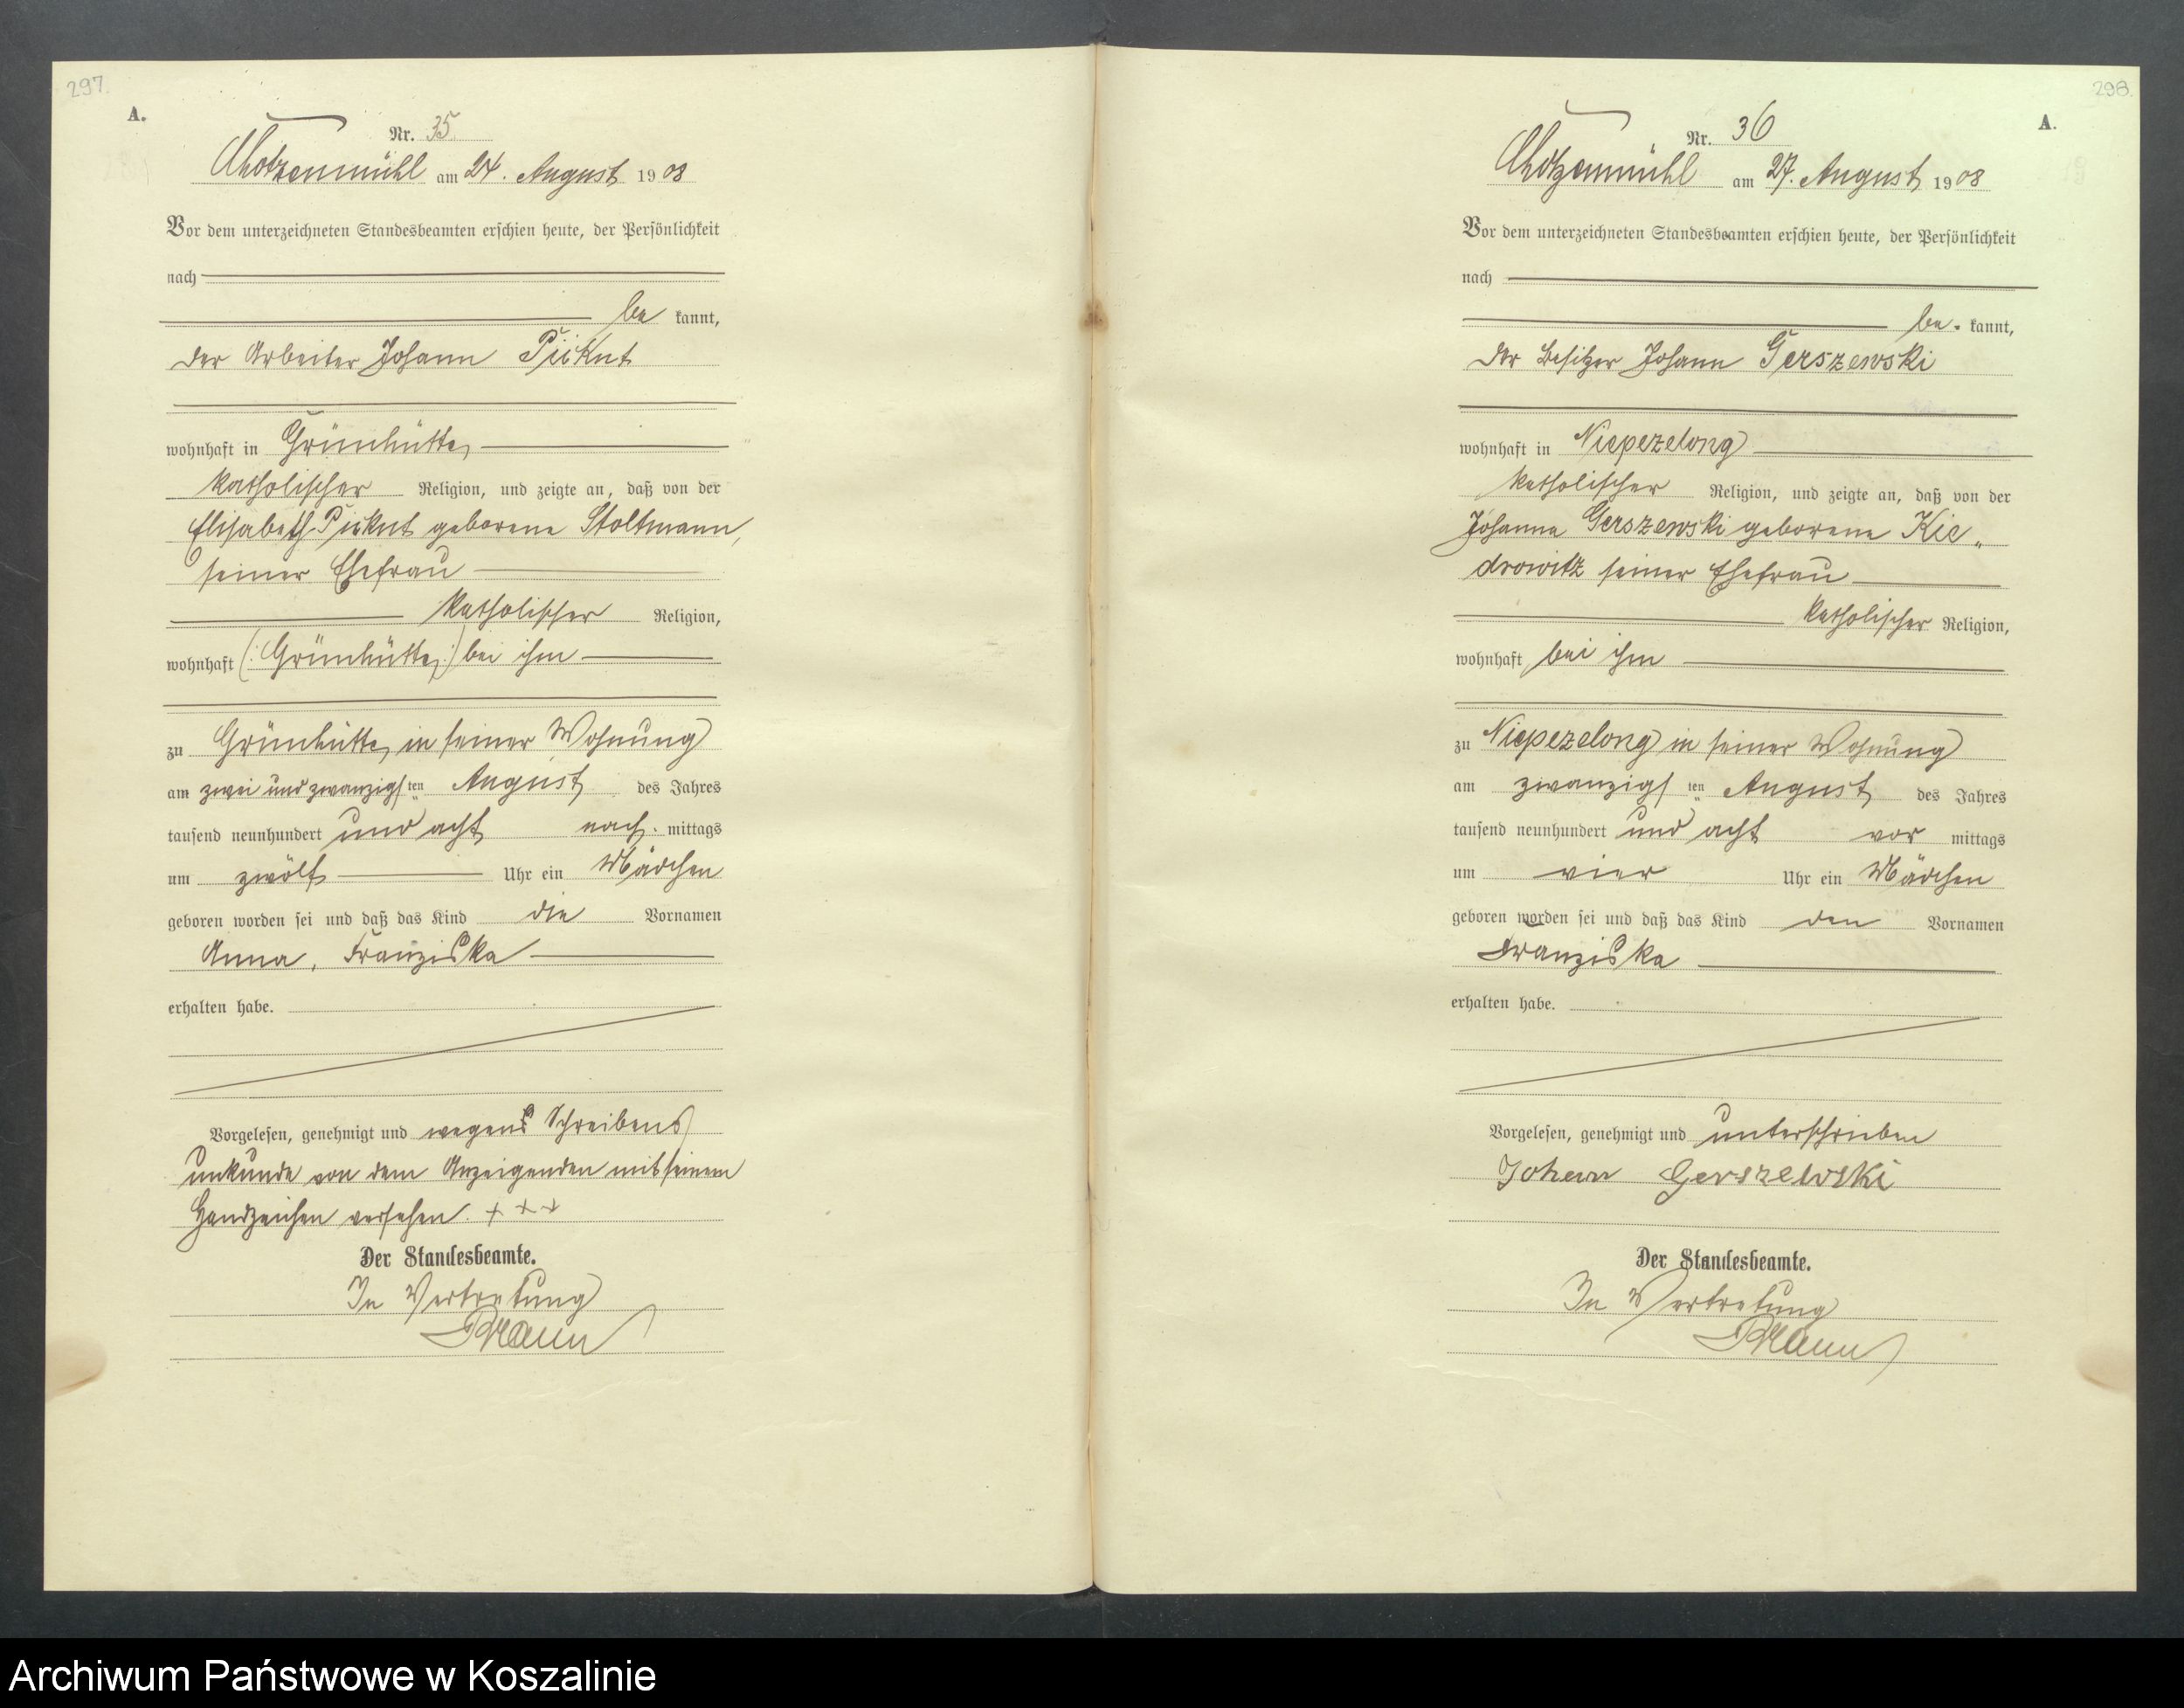 297.
A.
Nr. 35
Chotzenmühl am 24. August 1908
Vor dem unterzeichneten Standesbeamten erschien heute, der Persönlichkeit
nach
be kannt,
der Arbeiter Johann
wohnhaft in Grünhütte,
katholischer Religion, und zeigte an, daß von der
Elisabeth geborene Stoltmann,
seiner Ehefrau
katholischer Religion,
wohnhaft (: Grünhütte :) bei ihm
zu Grünhütte, in seiner Wohnung
am zwei und zwanzigsten August des Jahres
tausend neunhundert und acht nach mittags
um zwölf Uhr ein Mädchen
geboren worden sei und daß das Kind die Vornamen
Anna, Franziska
erhalten habe.
Vorgelesen, genehmigt und wegens Schreibens
unkunde von dem Anzeigenden mit seinem
Handzeichen versehen. + + +
Der Standesbeamte.
In Vertretung
298.
A.
Nr. 36
Chotzenmühl am 27. August 1908
Vor dem unterzeichneten Standesbeamten erschien heute, der Persönlichkeit
nach
be. kannt,
der Besitzer Johann Gerszewski
wohnhaft in Niepezelong
katholischer Religion, und zeigte an, daß von der
Johanna Gerszewski geborene Kie„
drowitz seiner Ehefrau
katholischer Religion,
wohnhaft bei ihm
zu Niepezelong in seiner Wohnung
am zwanzigsten August des Jahres
tausend neunhundert und acht vor mittags
um vier Uhr ein Mädchen
geboren worden sei und daß das Kind den Vornamen
Franziska
erhalten habe.
Vorgelesen, genehmigt und unterschrieben
Johann Gerszewski
Der Standesbeamte.
In Vertretung
Archiwum Państwowe w Koszalinie